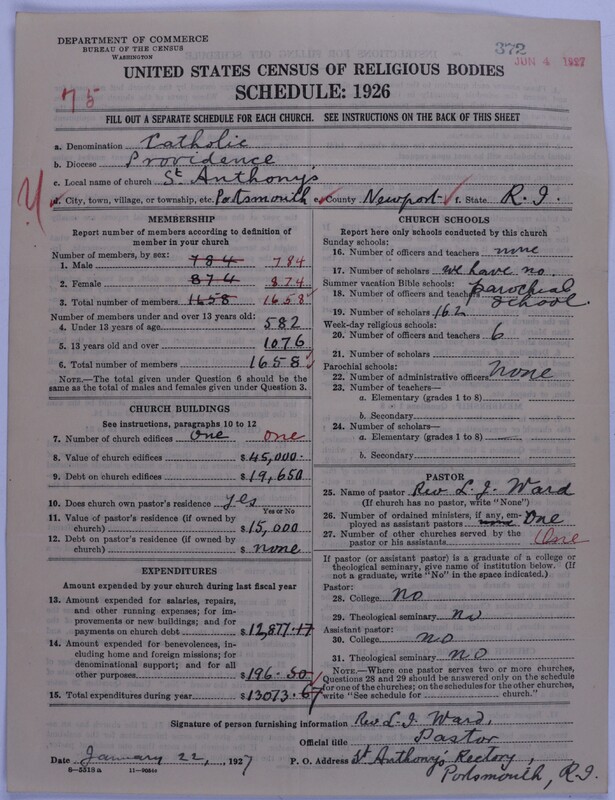 DEPARTMENT OF COMMERCE
BUREAU OF THE CENSUS
WASHINGTON
372
JUN 4 1927
UNITED STATES CENSUS OF RELIGIOUS BODIES
SCHEDULE: 1926
75
FILL OUT A SEPARATE SCHEDULE FOR EACH CHURCH. SEE INSTRUCTIONS ON THE BACK OF THIS SHEET
a. Denomination Catholic
b. Diocese Providence
c. Local name of church St Anthony's
d. City, town, village, or township, etc. Portsmouth e. County Newport f. State R.I.
MEMBERSHIP
Report number of members according to definition of member in your church
Number of members, by sex:
1. Male 784 784
2. Female 874 874
3. Total number of members 1658 1658
Number of members under and over 13 years old:
4. Under 13 years of age 582
5. 13 years old and over 1076
6. Total number of members 1658
NOTE.—The total given under Question 6 should be the same as the total of males and females given under Question 3.
CHURCH BUILDINGS
See instructions, paragraphs 10 to 12
7. Number of church edifices one one
8. Value of church edifices $45,000.
9. Debt on church edifices $19,650
10. Does church own pastor's residence yes
Yes or No
11. Value of pastor's residence (if owned by church) $15,000
12. Debt on pastor's residence (if owned by church) $none
EXPENDITURES
Amount expended by your church during last fiscal year
13. Amount expended for salaries, repairs, and other running expenses; for improvements or new buildings; and for payments on church debt $12,877.17
14. Amount expended for benevolences, including home and foreign missions; for denominational support; and for all other purposes $196.50
15. Total expenditures during year $13073.67
CHURCH SCHOOLS
Report here only schools conducted by this church
Sunday schools:
16. Number of officers and teachers none
17. Number of scholars we have no
Summer vacation Bible schools:
18. Number of officers and teachers parochial school.
19. Number of scholars 162
Week-day religious schools:
20. Number of officers and teachers 6
21. Number of scholars
Parochial schools:
22. Number of administrative officers none
23. Number of teachers—
a. Elementary (grades 1 to 8)
b. Secondary
24. Number of scholars—
a. Elementary (grades 1 to 8)
b. Secondary
PASTOR
25. Name of pastor Rev L. J. Ward
(If church has no pastor, write "None")
26. Number of ordained ministers, if any, employed as assistant pastors none One
27. Number of other churches served by the pastor or his assistants One
If pastor (or assistant pastor) is a graduate of a college or theological seminary, give name of institution below. (If not a graduate, write "No" in the space indicated.)
Pastor:
28. College No
29. Theological seminary no
Assistant pastor:
30. College no
31. Theological seminary no
NOTE.—Where one pastor serves two or more churches, Questions 28 and 29 should be answered only on the schedule for one of the churches; on the schedules for the other churches, write "See schedule for church."
Signature of person furnishing information Rev L. J. Ward,
Official title Pastor
Date January 22, 1927 P. O. Address St Anthony's Rectory,
Portsmouth, R.I.
8—5518a